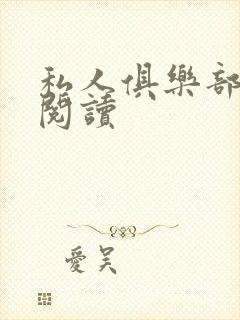 私人俱樂部
閱讀
愛吴